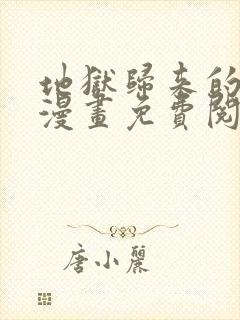 地獄歸来的
漫畫免費閱
唐小麗